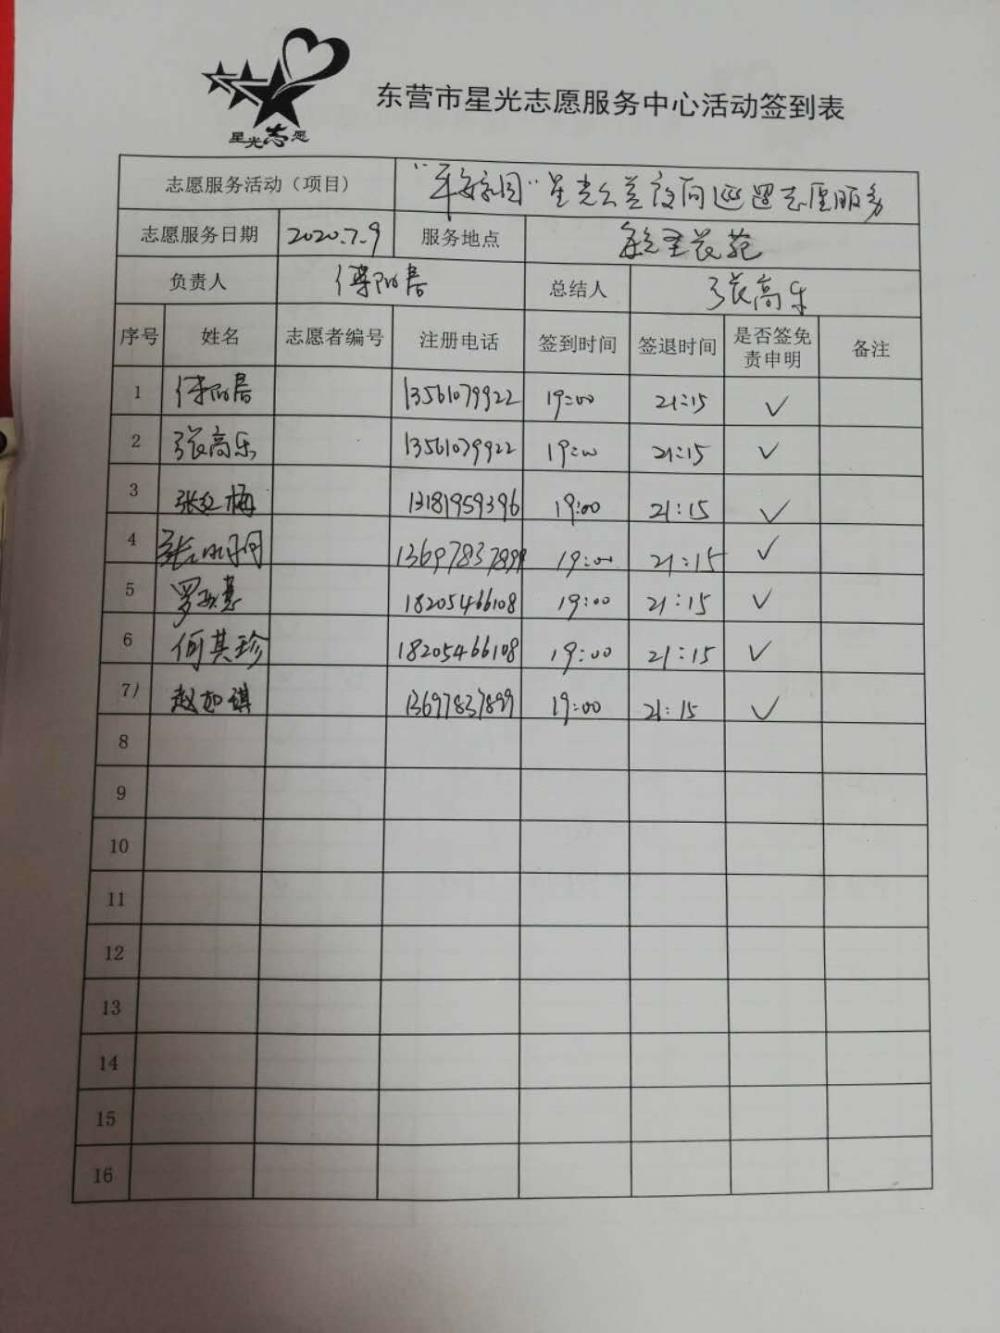 星光志愿
东营市星光志愿服务中心活动签到表
志愿服务活动（项目） "平安家园"星光公益夜间巡逻志愿服务
志愿服务日期 2020.7.9 服务地点
负责人 总结人 张高乐
序号 姓名 志愿者编号 注册电话 签到时间 签退时间 是否签免责申明 备注
1 13561079922 19:00 21:15 ✓
2 张高乐 13561079922 19:00 21:15 ✓
3 张红梅 13181959396 19:00 21:15 ✓
4 13697837899 19:00 21:15 ✓
5 18205466108 19:00 21:15 ✓
6 何其珍 18205466108 19:00 21:15 ✓
7 赵如祺 13697837899 19:00 21:15 ✓
8
9
10
11
12
13
14
15
16